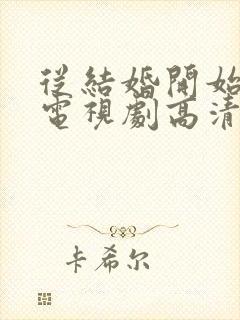 從結婚開始
電視劇高清
卡希尔